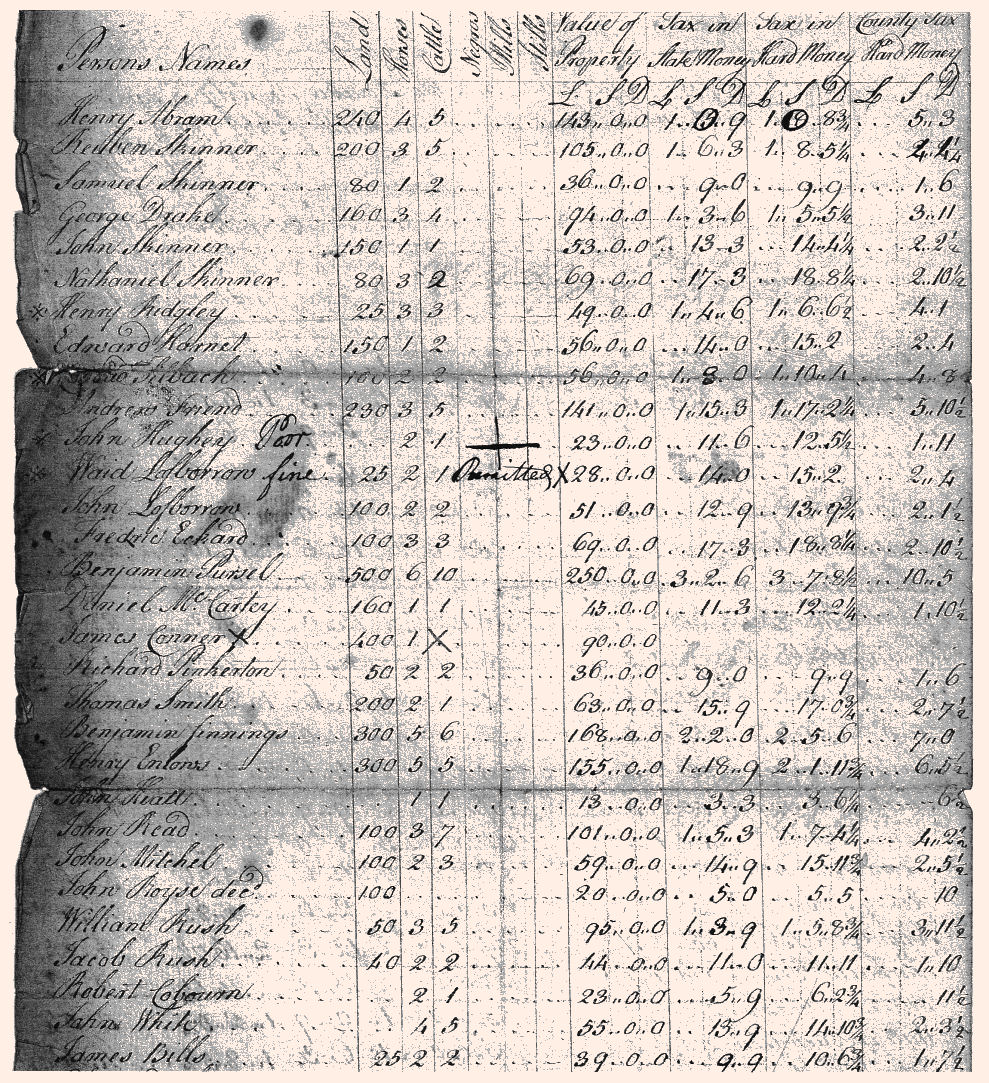 Persons Names Land Horses Cattle Negros Mills Stills Value of Property Tax in State Money Tax in Hard Money County Tax Hard Money
L S D L S D L S D L S D
Henry Abram 240 4 5 143..0..0 1.. ..9 1.. ..8¾ 5..3
Reuben Skinner 200 3 5 105..0..0 1..6..3 1..8..5¼
Samuel Skinner 80 1 2 36..0..0 9..0 9..9 1..6
George Drake 160 3 4 94..0..0 1..3..6 1..5..5½ 3..11
John Skinner 150 1 1 53..0..0 13..3 14..4¼ 2..2½
Nathaniel Skinner 80 3 2 69..0..0 17..3 18..8¼ 2..10½
* Henry Ridgley 25 3 3 49..0..0 1..4..6 1..6..6½ 4..1
Edward Hornet 150 1 2 56..0..0 14..0 15..2 2..4
* 100 2 2 56..0..0 1..8..0 1..10..4 4..8
Andrew Friend 230 3 5 141..0..0 1..15..3 1..17..2¼ 5..10½
* John Hughey Poor 2 1 23..0..0 11..6 12..5½ 1..11
* Waid Lofborrow fine 25 2 1 Omitted X 28..0..0 14..0 15..2 2..4
John Lofborrow 100 2 2 51..0..0 12..9 13..9¾ 2..1½
Fredric Eckard 100 3 3 69..0..0 17..3 18..8¼ 2..10½
Benjamin Pursel 500 6 10 250..0..0 3..2..6 3..7..8½ 10..5
Daniel McCartey 160 1 1 45..0..0 11..3 12..2¼ 1..10½
James Conner X 400 1 X 90..0..0
Richard Pinkerton 50 2 2 36..0..0 9..0 9..9 1..6
Thomas Smith 200 2 1 63..0..0 15..9 17..0¾ 2..7½
Benjamin Jinnings 300 5 6 168..0..0 2..2..0 2..5..6 7..0
Henry Enlows 300 5 5 155..0..0 1..18..9 2..1..11¾ 6..5½
John Hiatt 1 1 13..0..0 3..3 3..6¼ 6½
John Read 100 3 7 101..0..0 1..5..3 1..7..4¼ 4..2½
John Mitchel 100 2 3 59..0..0 14..9 15..11¾ 2..5½
John Royse decd 100 20..0..0 5..0 5..5 10
William Rush 50 3 5 95..0..0 1..3..9 1..5..8¾ 3..11½
Jacob Rush 40 2 2 44..0..0 11..0 11..11 1..10
Robert Cobourn 2 1 23..0..0 5..9 6..2¾ 11½
John White 4 5 55..0..0 13..9 14..10¾ 2..3½
James Bells 25 2 2 39..0..0 9..9 10..6¾ 1..7½